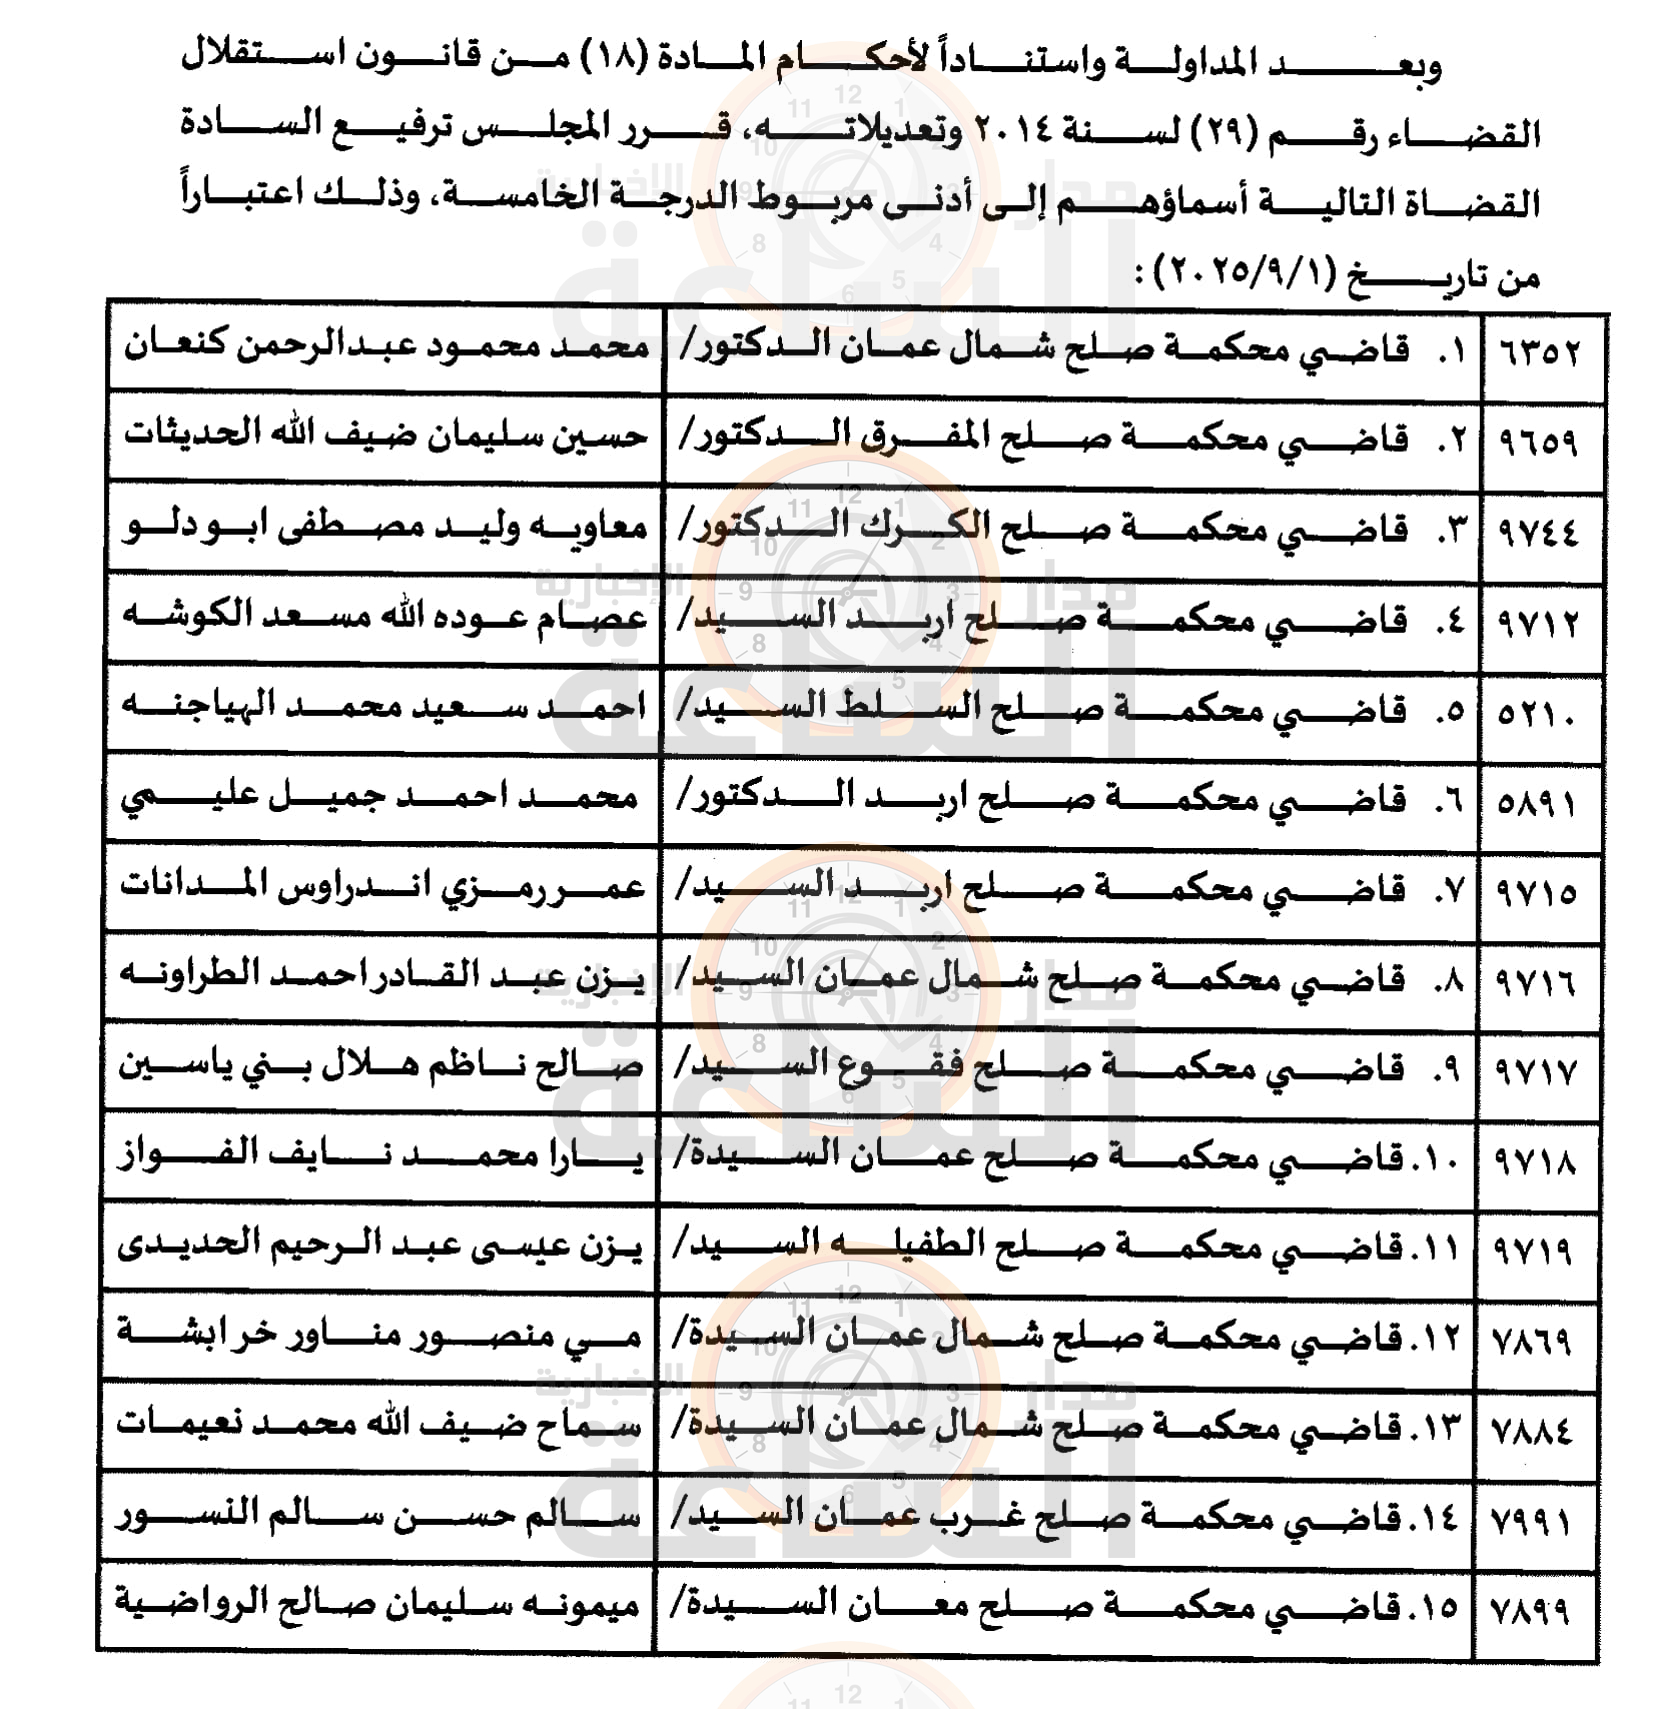 وبعد المداولة واستناداً لأحكام المادة (١٨) من قانون استقلال
القضاء رقم (٢٩) لسنة ٢٠١٤ وتعديلاته، قرر المجلس ترفيع السادة
القضاة التالية أسماؤهم إلى أدنى مربوط الدرجة الخامسة، وذلك اعتباراً
من تاريخ (٢٠٢٥/٩/١):
٦٣٥٢ ١. قاضي محكمة صلح شمال عمان الدكتور/ محمد محمود عبدالرحمن كنعان
٩٦٥٩ ٢. قاضي محكمة صلح المفرق الدكتور/ حسين سليمان ضيف الله الحديثات
٩٧٤٤ ٣. قاضي محكمة صلح الكرك الدكتور/ معاويه وليد مصطفى ابو دلو
٩٧١٢ ٤. قاضي محكمة صلح اربد السيد/ عصام عوده الله مسعد الكوشه
٥٢١٠ ٥. قاضي محكمة صلح السلط السيد/ احمد سعيد محمد الهياجنه
٥٨٩١ ٦. قاضي محكمة صلح اربد الدكتور/ محمد احمد جميل عليمي
٩٧١٥ ٧. قاضي محكمة صلح اربد السيد/ عمر رمزي اندراوس المدانات
٩٧١٦ ٨. قاضي محكمة صلح شمال عمان السيد/ يزن عبد القادر احمد الطراونه
٩٧١٧ ٩. قاضي محكمة صلح فقوع السيد/ صالح ناظم هلال بني ياسين
٩٧١٨ ١٠. قاضي محكمة صلح عمان السيدة/ يارا محمد نايف الفواز
٩٧١٩ ١١. قاضي محكمة صلح الطفيله السيد/ يزن عيسى عبد الرحيم الحديدى
٧٨٦٩ ١٢. قاضي محكمة صلح شمال عمان السيدة/ مي منصور مناور خرابشة
٧٨٨٤ ١٣. قاضي محكمة صلح شمال عمان السيدة/ سماح ضيف الله محمد نعيمات
٧٩٩١ ١٤. قاضي محكمة صلح غرب عمان السيد/ سالم حسن سالم النسور
٧٨٩٩ ١٥. قاضي محكمة صلح معان السيدة/ ميمونه سليمان صالح الرواضية
مدار
الساعة
الإخبارية